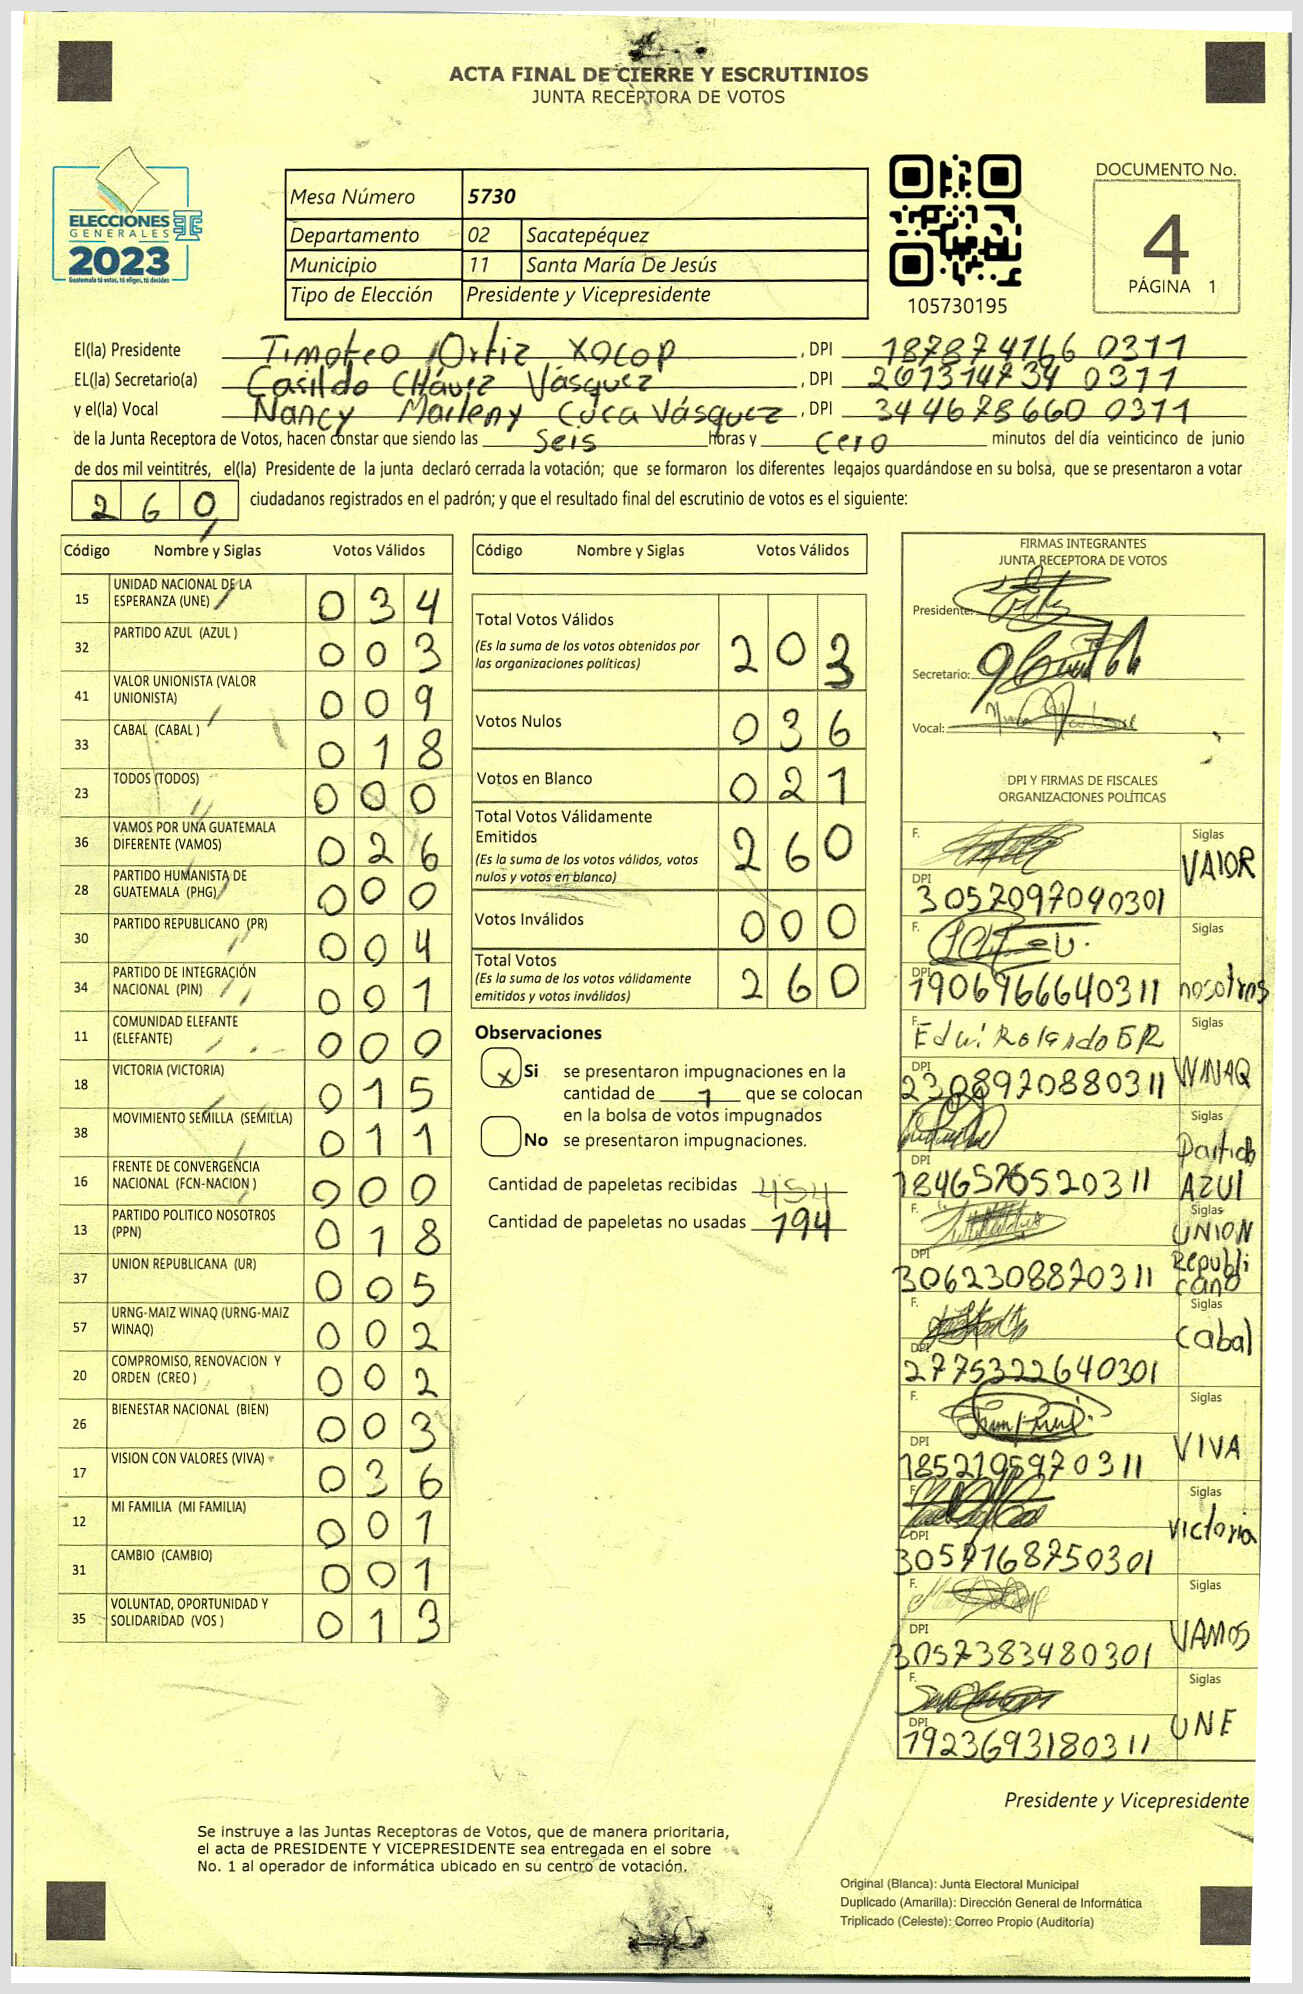 ACTA FINAL DE CIERRE Y ESCRUTINIOS
JUNTA RECEPTORA DE VOTOS
ELECCIONES
GENERALES
2023
Guatemala tú votas, tú eliges, tú decides
Mesa Número 5730
Departamento 02 Sacatepéquez
Municipio 11 Santa María De Jesús
Tipo de Elección Presidente y Vicepresidente
105730195
DOCUMENTO No.
4
PÁGINA 1
El(la) Presidente Timoteo Ortiz XOCOP , DPI 187874166 0311
EL(la) Secretario(a) Casildo CHávez Vásquez , DPI 261314734 0311
y el(la) Vocal Nancy Marleny Cuca Vásquez , DPI 344678660 0311
de la Junta Receptora de Votos, hacen constar que siendo las Seis horas y cero minutos del día veinticinco de junio
de dos mil veintitrés, el(la) Presidente de la junta declaró cerrada la votación; que se formaron los diferentes legajos guardándose en su bolsa, que se presentaron a votar
260 ciudadanos registrados en el padrón; y que el resultado final del escrutinio de votos es el siguiente:
Código Nombre y Siglas Votos Válidos
15 UNIDAD NACIONAL DE LA ESPERANZA (UNE) 034
32 PARTIDO AZUL (AZUL ) 003
41 VALOR UNIONISTA (VALOR UNIONISTA) 009
33 CABAL (CABAL ) 018
23 TODOS (TODOS) 000
36 VAMOS POR UNA GUATEMALA DIFERENTE (VAMOS) 026
28 PARTIDO HUMANISTA DE GUATEMALA (PHG) 000
30 PARTIDO REPUBLICANO (PR) 004
34 PARTIDO DE INTEGRACIÓN NACIONAL (PIN) 001
11 COMUNIDAD ELEFANTE (ELEFANTE) 000
18 VICTORIA (VICTORIA) 015
38 MOVIMIENTO SEMILLA (SEMILLA) 011
16 FRENTE DE CONVERGENCIA NACIONAL (FCN-NACION ) 000
13 PARTIDO POLITICO NOSOTROS (PPN) 018
37 UNION REPUBLICANA (UR) 005
57 URNG-MAIZ WINAQ (URNG-MAIZ WINAQ) 002
20 COMPROMISO, RENOVACION Y ORDEN (CREO ) 002
26 BIENESTAR NACIONAL (BIEN) 003
17 VISION CON VALORES (VIVA) 036
12 MI FAMILIA (MI FAMILIA) 001
31 CAMBIO (CAMBIO) 001
35 VOLUNTAD, OPORTUNIDAD Y SOLIDARIDAD (VOS ) 013
Código Nombre y Siglas Votos Válidos
Total Votos Válidos 203
(Es la suma de los votos obtenidos por
las organizaciones políticas)
Votos Nulos 036
Votos en Blanco 021
Total Votos Válidamente
Emitidos 260
(Es la suma de los votos válidos, votos
nulos y votos en blanco)
Votos Inválidos 000
Total Votos 260
(Es la suma de los votos válidamente
emitidos y votos inválidos)
Observaciones
x Si se presentaron impugnaciones en la
cantidad de 1 que se colocan
en la bolsa de votos impugnados
No se presentaron impugnaciones.
Cantidad de papeletas recibidas 454
Cantidad de papeletas no usadas 194
FIRMAS INTEGRANTES
JUNTA RECEPTORA DE VOTOS
Presidente:
Secretario:
Vocal:
DPI Y FIRMAS DE FISCALES
ORGANIZACIONES POLÍTICAS
F. Siglas
VAlOR
DPI
3057097090301
F. Siglas
DPI
1906966640311 nosotros
F. Siglas
DPI
2308970880311 WINAQ
Siglas
Partido
DPI
1846576520311 AZUl
F. Siglas
UNION
DPI Republi
3062308870311 cano
F. Siglas
Cabal
DPI
2775322640301
F. Siglas
DPI VIVA
1852195970311
F. Siglas
victoria
DPI
3057168750301
F. Siglas
DPI VAMOS
3057383480301
F. Siglas
DPI UNE
1923693180311
Presidente y Vicepresidente
Se instruye a las Juntas Receptoras de Votos, que de manera prioritaria,
el acta de PRESIDENTE Y VICEPRESIDENTE sea entregada en el sobre
No. 1 al operador de informática ubicado en su centro de votación.
Original (Blanca): Junta Electoral Municipal
Duplicado (Amarilla): Dirección General de Informática
Triplicado (Celeste): Correo Propio (Auditoría)